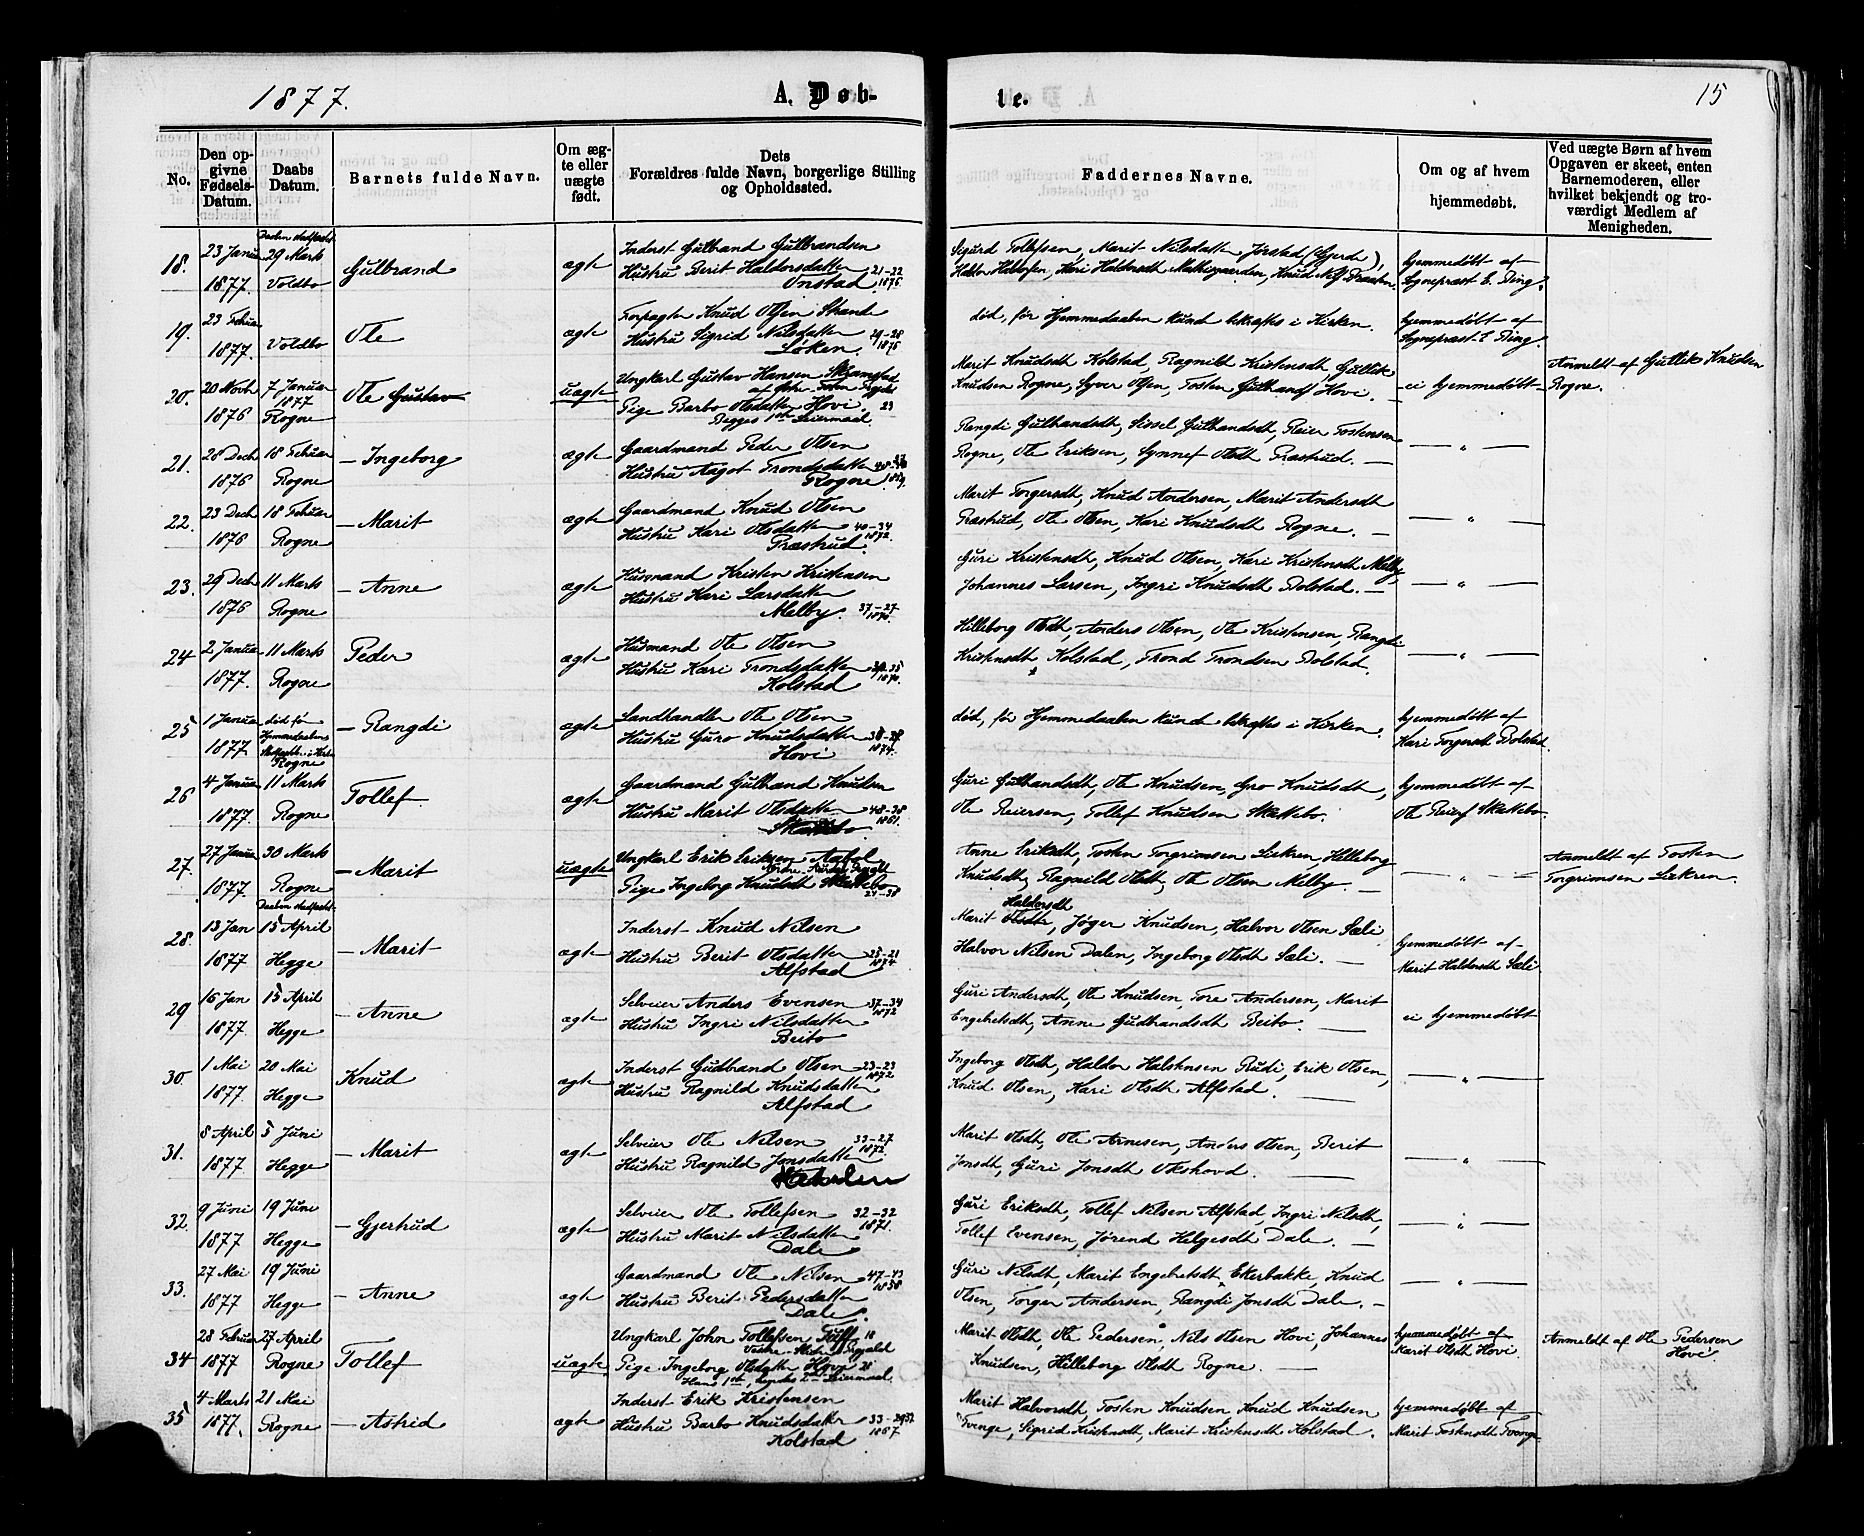 1877.
A. Døb-
te.
15
No.
Den opgivne Fødsels-Datum.
Daabs Datum.
Barnets fulde Navn.
Om ægte eller uægte født.
Dets Forældres fulde Navn, borgerlige Stilling og Opholdssted.
Faddernes Navne.
Om og af hvem hjemmedøbt.
Ved uægte Børn af hvem Opgaven er skeet, enten Barnemoderen, eller hvilket bekjendt og troværdigt Medlem af Menigheden.
18. 23 Janua 1877. 29 Marts Voldbo
Gulbrand
ægte
Inderst Gulbrand Gulbrandsen
Hustru Berit Haldorsdatter 21-22
Onstad
Sigurd Tollefsen, Marit Nilsdatter Jørstad (Gjerde),
hjemmedøbt af
Sognepræst E. Ting.
19. 23 Februa 1877. Voldbo
Ole
ægte
Forpagter Knud Olsen Strande
Hustru Sigrid Nilsdatter
Løken.
død, før Hjemmedaaben kunde bekræftes i Kirken.
hjemmedøbt af
Sognepræst E Ting.
20. 20 Novbr 1876 7 Januar 1877 Rogne
Ole Gustav
uægte
Ungkarl Gustav Hansen Skramstad
Pige Barbo Olsdatter Hovi. 23
Begges 1ste Leiermaal.
Marit Knudsdt Kolstad, Ragnild Kristensdt, Gullik
Knudsen Rogne, Syver Olsen, Tosten Gulbrands Hovi.
ei hjemmedøbt
Anmeldt af Gullik Knudsen
Rogne.
21. 28 Decb 1876 18 Februar Rogne
– Ingeborg
ægte
Gaardmand Peder Olsen
Hustru Aagot Trondsdatter
Rogne
Rangdi Gulbrandsdt, Sissel Gulbrandsdt, Reier Tostensen
Rogne, Ole Eriksen, Synnef Olsdt Præstrud.
— " —
22. 23 Decb 1876 18 Februar Rogne
– Marit
ægte
Gaardmand Knud Olsen
Hustru Kari Olsdatter 40-34 1872.
Præstrud.
Marit Torgersdt, Knud Andersen, Marit Andersdt
Præstrud, Ole Olsen, Kari Knudsdt Rogne.
— " —
23. 29 Decb 1876 11 Marts Rogne
– Anne
ægte
Husmand Kristen Kristensen
Hustru Kari Larsdatter
Melby. 37-27 1870.
Guri Kristensdt, Knud Olsen, Kari Kristensdt Melby,
Johannes Larsen, Ingri Knudsdt Bolstad.
— " —
24 2 Janua 1877. 11 Marts Rogne
Peder
ægte
Husmand Ole Olsen
Hustru Kari Trondsdatter
Kolstad
Hilleborg Olsdt, Anders Olsen, Ole Kristensen, Rangdi
Kristensdt Kolstad, Trond Trondsen Bolstad.
— " —
25 1 Janua 1877. død før Hjemmedaaben Rogne
– Rangdi
ægte
Landhandler Ole Olsen
Hustru Guro Knudsdatter
Hovi 1874.
død, før Hjemmedaaben kunde bekræftes i Kirken.
hjemmedøbt af
Kari Torgersdt Bolstad.
26 4 Janua 1877. 11 Marts Rogne
Tollef
ægte
Gaardmand Gulbrand Knudsen
Hustru Marit Olsdatter 48-38 1861.
Skattebo
Guri Gulbrandsdt, Ole Knudsen, Gro Knudsdt,
Ole Reiersen, Tollef Knudsen Skattebo.
hjemmedøbt af
Ole Reiers Skattebo.
27. 27 Janua 1877. 30 Marts Rogne
– Marit
uægte
Ungkarl Erik Eriksen Aabol
Pige Ingeborg Knudsdt Skattebo
Anne Eriksdt, Tosten Torgrimsen Liekren, Hilleborg
Knudsdt, Ragnild Olsdt, Ole Olsen Melby.
— " —
Anmeldt af Tosten
Torgrimsen Liekren.
28. 13 Jan 1877. 15 April Hegge
– Marit
ægte
Inderst Knud Nilsen
Hustru Berit Olsdatter 25-21 1874
Alfstad
Haldorsdt
Marit Olsdt, Jøger Knudsen, Halvor Olsen Sæli
Halvor Nilsen Dalen, Ingeborg Olsdt Sæli.
hjemmedøbt af
Marit Haldorsdt Sæli
29 16 Jan 1877. 15 April Hegge
– Anne
ægte
Selveier Anders Evensen 37-34 1872
Hustru Ingri Nilsdatter
Beito
Guri Andersdt, Ole Knudsen, Tore Andersen, Marit
Engebretsdt, Anne Gudbrandsdt Beito.
ei hjemmedøbt
30. 1 Mai 1877. 20 Mai Hegge
Knud
ægte
Inderst Gudbrand Olsen 23-23 1872
Hustru Ragnild Knudsdatter
Alfstad
Ingeborg Olsdt, Haldor Halstensen Rudi, Erik Olsen,
Knud Olsen, Kari Olsdt Alfstad.
— " —
31. 8 April 1877. 3 Juni Hegge
– Marit
ægte
Selveier Ole Nilsen 33-27 1872.
Hustru Ragnild Jonsdatter
Marit Olsdt, Ole Arnesen, Anders Olsen, Berit
Jonsdt, Guri Jonsdt Okshovd.
— " —
32. 9 Juni 1877 19 Juni Hegge
– Gjertrud
ægte
Selveier Ole Tollefsen 32-32 1871.
Hustru Marit Nilsdatter
Dale
Guri Eriksdt, Tollef Nilsen Alfstad, Ingri Nilsdt,
Tollef Evensen, Jørend Helgesdt Dale.
— " —
33. 27 Mai 1877 19 Juni Hegge
– Anne
ægte
Gaardmand Ole Nilsen 47-43 1858
Hustru Berit Pedersdatter
Dale.
Guri Nilsdt, Marit Engebretsdt Ekerbakke, Knud
Olsen, Torger Andersen, Rangdi Jonsdt Dale.
— " —
34 28 Februar 1877 27 April Rogne
Tollef
uægte
Ungkarl John Tollefsen
Pige Ingeborg Olsdatter Hovi
Marit Olsdt, Ole Pedersen, Nils Olsen Hovi, Johannes
Knudsen, Hilleborg Olsdt Rogne.
hjemmedøbt af
Marit Olsdt Hovi.
Anmeldt af Ole Pedersen
Hovi.
35 4 Marts 1877. 21 Mai Rogne
– Astrid
ægte
Inderst Erik Kristensen
Hustru Barbo Knudsdatter
1867
Kolstad
Marit Halvorsdt, Tosten Knudsen Knud Knudsen
Tvenge, Sigrid Kristensdt, Marit Kristensdt Kolstad.
hjemmedøbt af
Marit Tostensdt Tvenge